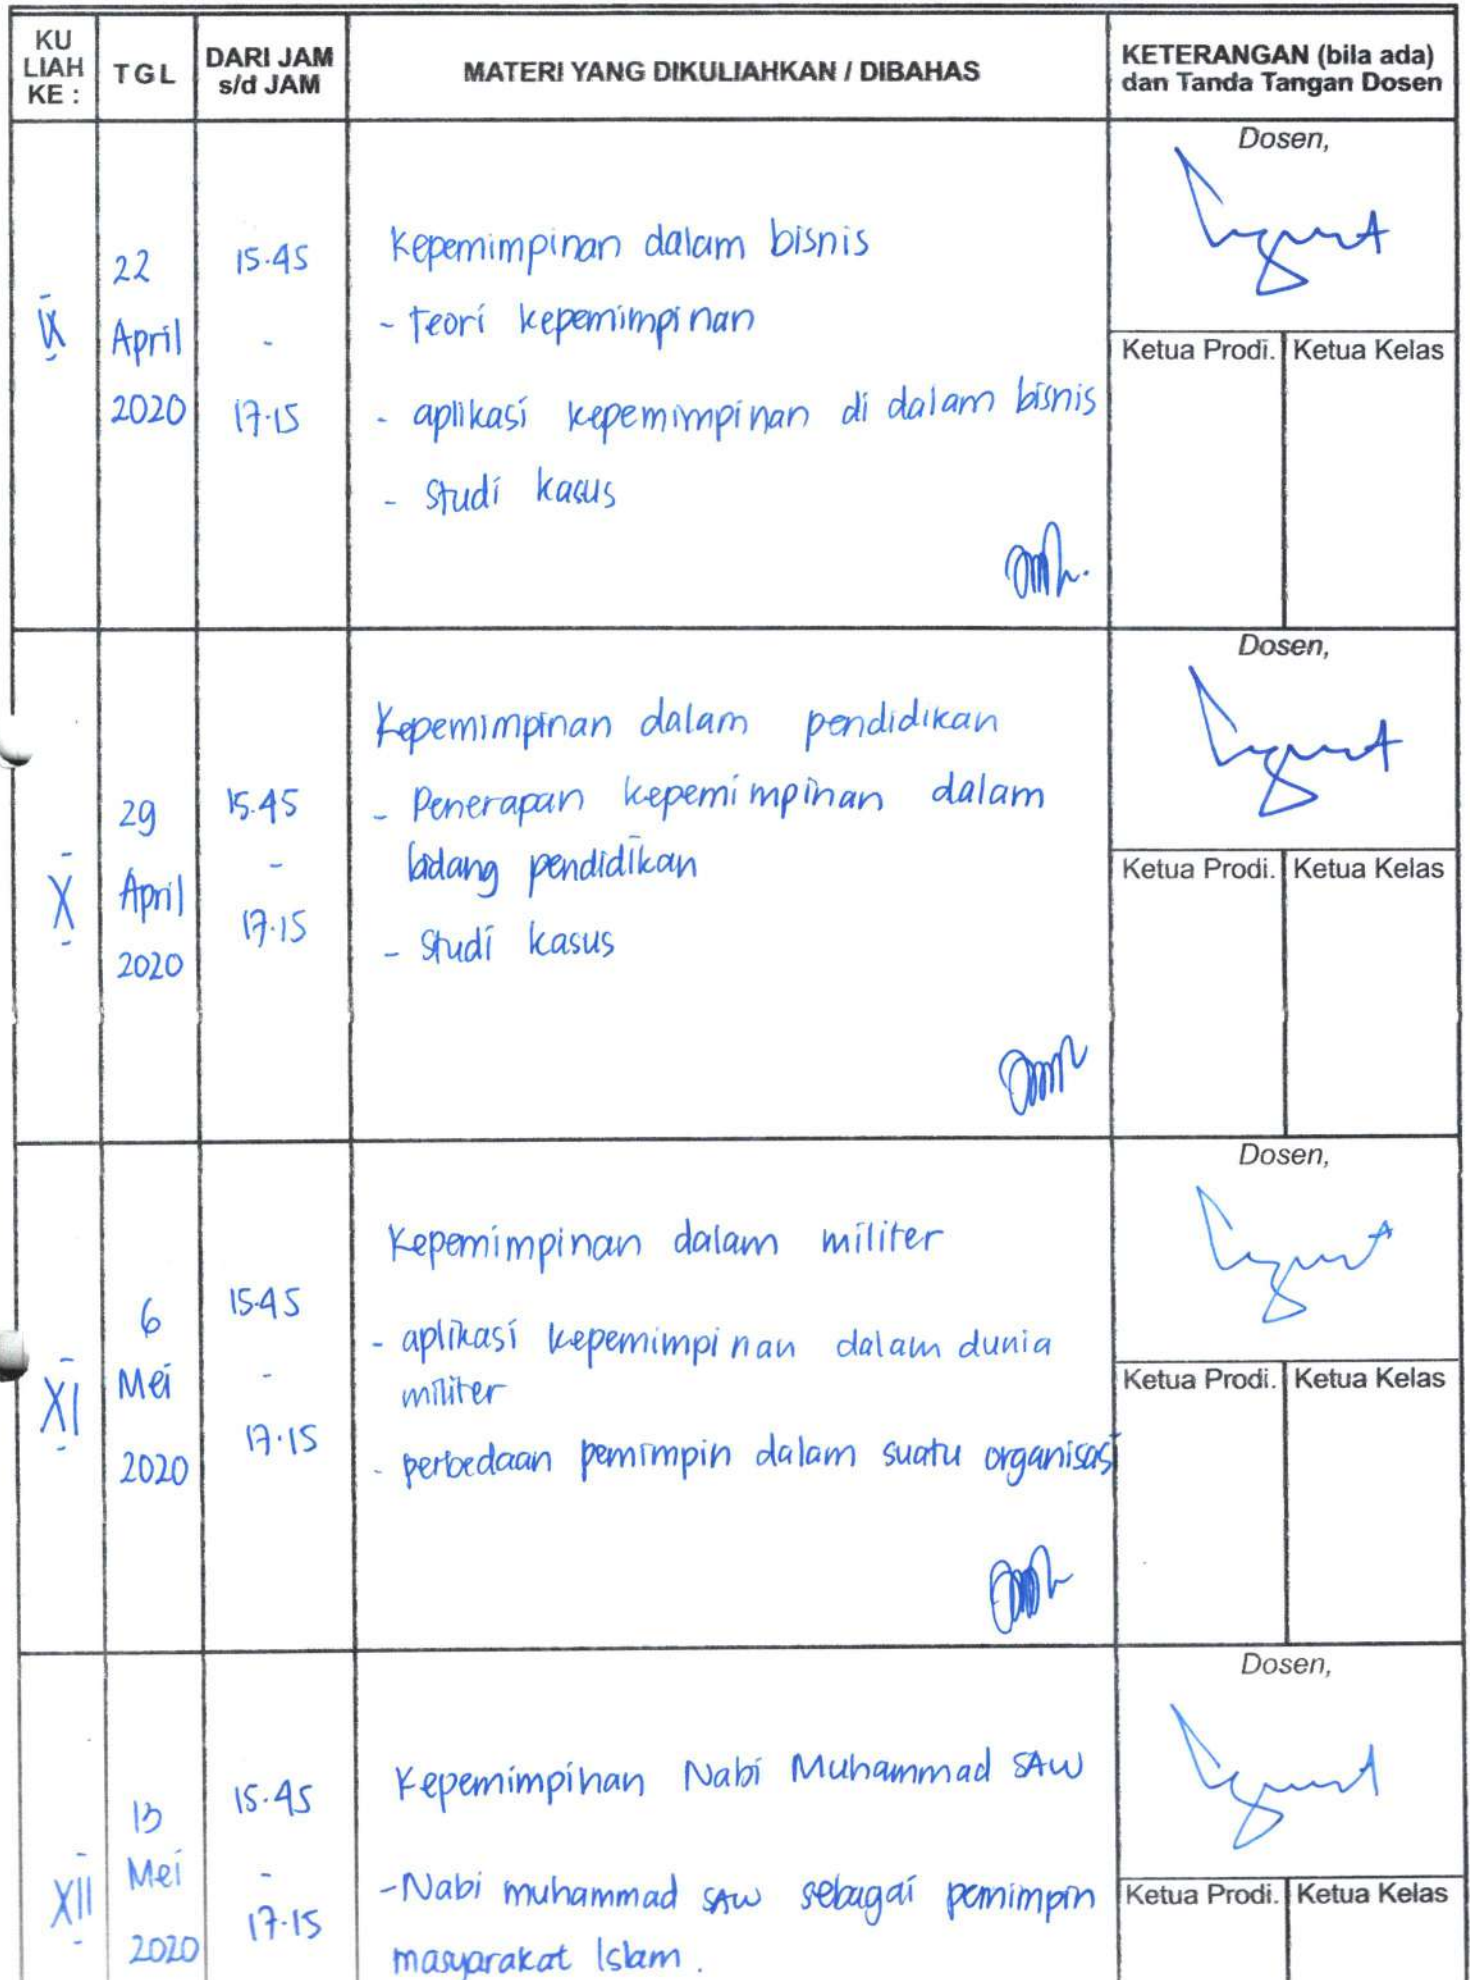 KU LIAH KE :
TGL
DARI JAM s/d JAM
MATERI YANG DIKULIAHKAN / DIBAHAS
KETERANGAN (bila ada) dan Tanda Tangan Dosen
IX
22
April
2020
15.45
-
17.15
Kepemimpinan dalam bisnis
- teori kepemimpinan
- aplikasi kepemimpinan di dalam bisnis
- Studi kasus
Dosen,
Ketua Prodi.
Ketua Kelas
X
29
April
2020
15.45
-
17.15
Kepemimpinan dalam pendidikan
- Penerapan kepemimpinan dalam
bidang pendidikan
- Studi kasus
Dosen,
Ketua Prodi.
Ketua Kelas
XI
6
Mei
2020
15.45
-
17.15
Kepemimpinan dalam militer
- aplikasi kepemimpinan dalam dunia
militer
- perbedaan pemimpin dalam suatu organisasi
Dosen,
Ketua Prodi.
Ketua Kelas
XII
13
Mei
2020
15.45
-
17.15
Kepemimpinan Nabi Muhammad SAW
- Nabi muhammad SAW sebagai pemimpin
masyarakat Islam.
Dosen,
Ketua Prodi.
Ketua Kelas